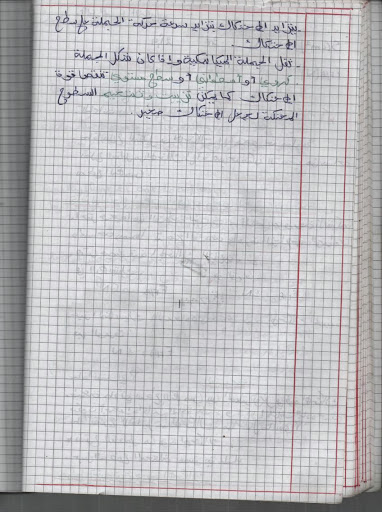 - يتزايد الاحتكاك بتزايد سرعة حركة الجملة على سطح
الاحتكاك.
- تقل الجملة الميكانيكية وإذا كان شكل الجملة
كروي أو أسطواني أو سطح مستوي فتنقص قوة
الاحتكاك كما يمكن تزييت وتشحيم السطوح
المحتكة لجعل الاحتكاك صغير.